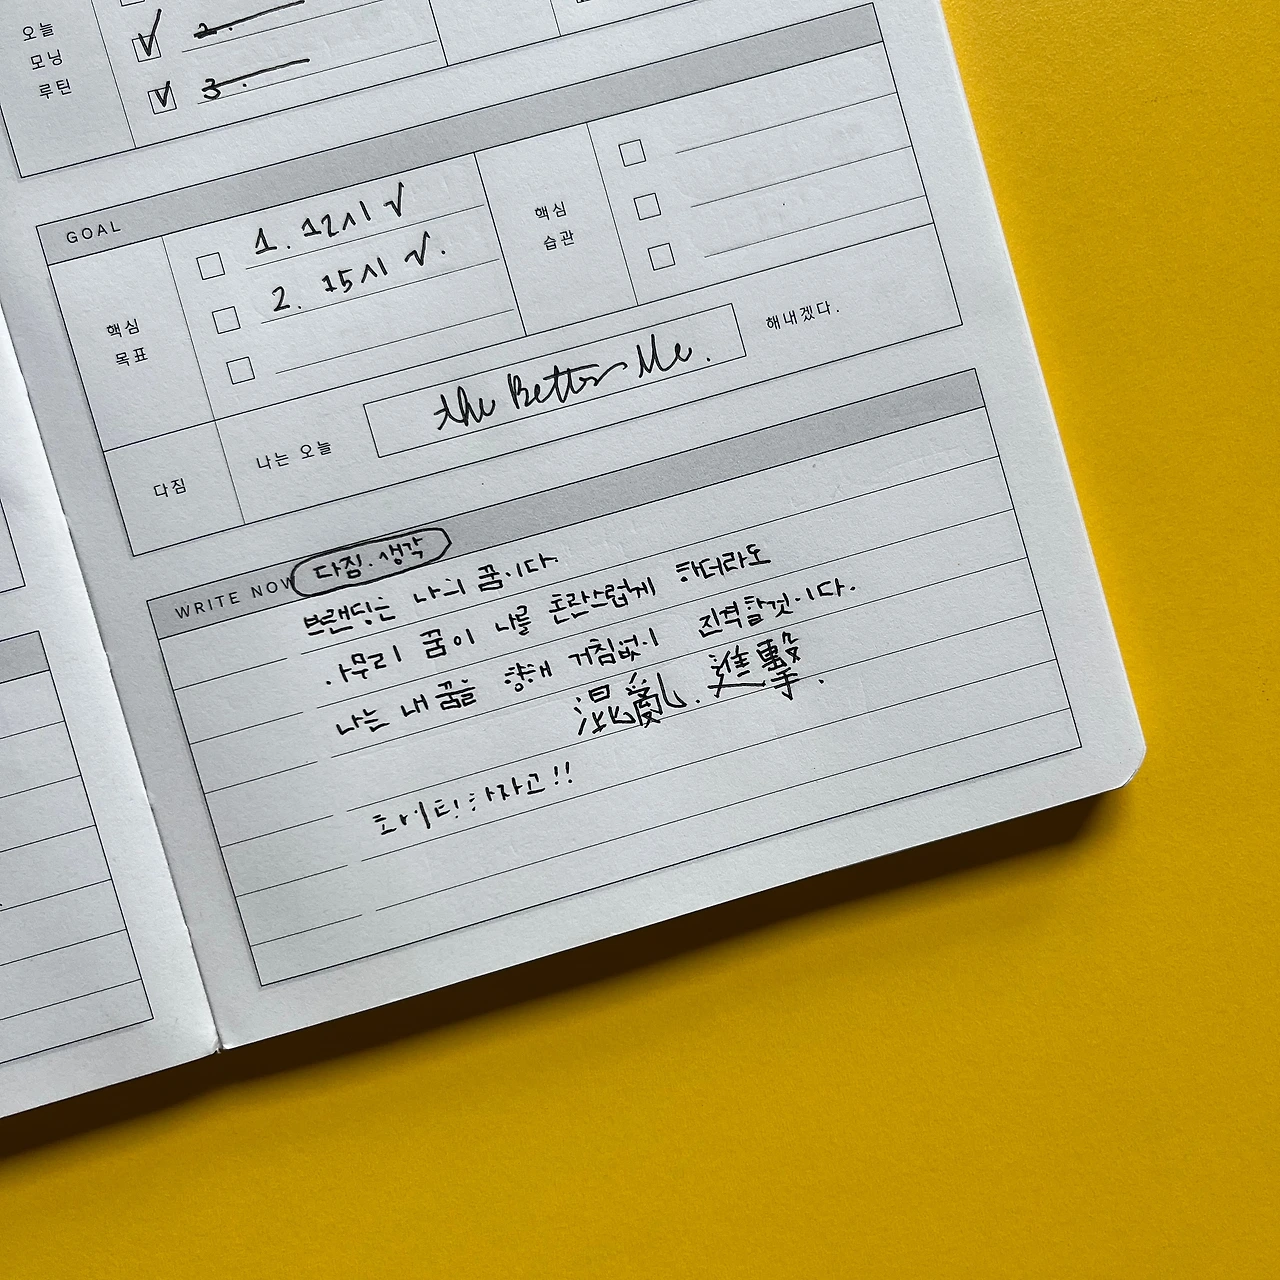 오늘
모닝
루틴
2.
3.
GOAL
핵심
목표
1. 12시 √
2. 15시 √.
핵심
습관
다짐
나는 오늘
the Better Me.
해내겠다.
WRITE NOW
다짐.생각
브랜딩은 나의 꿈이다
아무리 꿈이 나를 혼란스럽게 하더라도
나는 내 꿈을 향해 거침없이 진격할것이다.
混亂. 進擊.
화이팅하자고!!